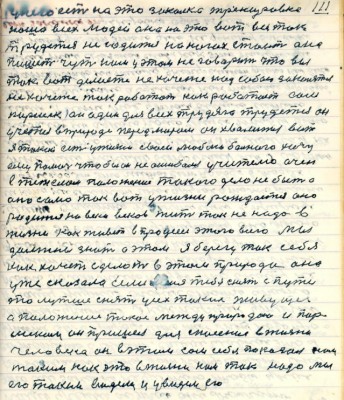 у него есть на это закалка тренировка 111
нашо всех людей она на это вот все так
трудится не садится на ногах стоит она
пишет чут нам у этом не говорит что вы
так вот делаете не хочете над собою заниматся
не хочете так работат как работает сам
паршек) он один для всех трудяго трудется он
учется в природе перед миром он хвалится вот
я такой ест у жизни своей любого балного хочу
ему помоч чтобы он не ошибался учителю очен
в тяжелам положение такого дело не было
оно само так вот у жизни рождается оно
родится на веки веков жит так не надо в
жизни как живет в природе этого всего мы
должны знат о этом я берегу так себя
как хочет сделат в этом природа она
уже сказала тебя снят с пути
это лутше снят усех таких живущих
а положение такое между природою и пар
шеком он пришел для спасения в жизни
человека он в этим сам себя показал нам
таким как это в жизни нам так надо мы
его таким видели и увидим его